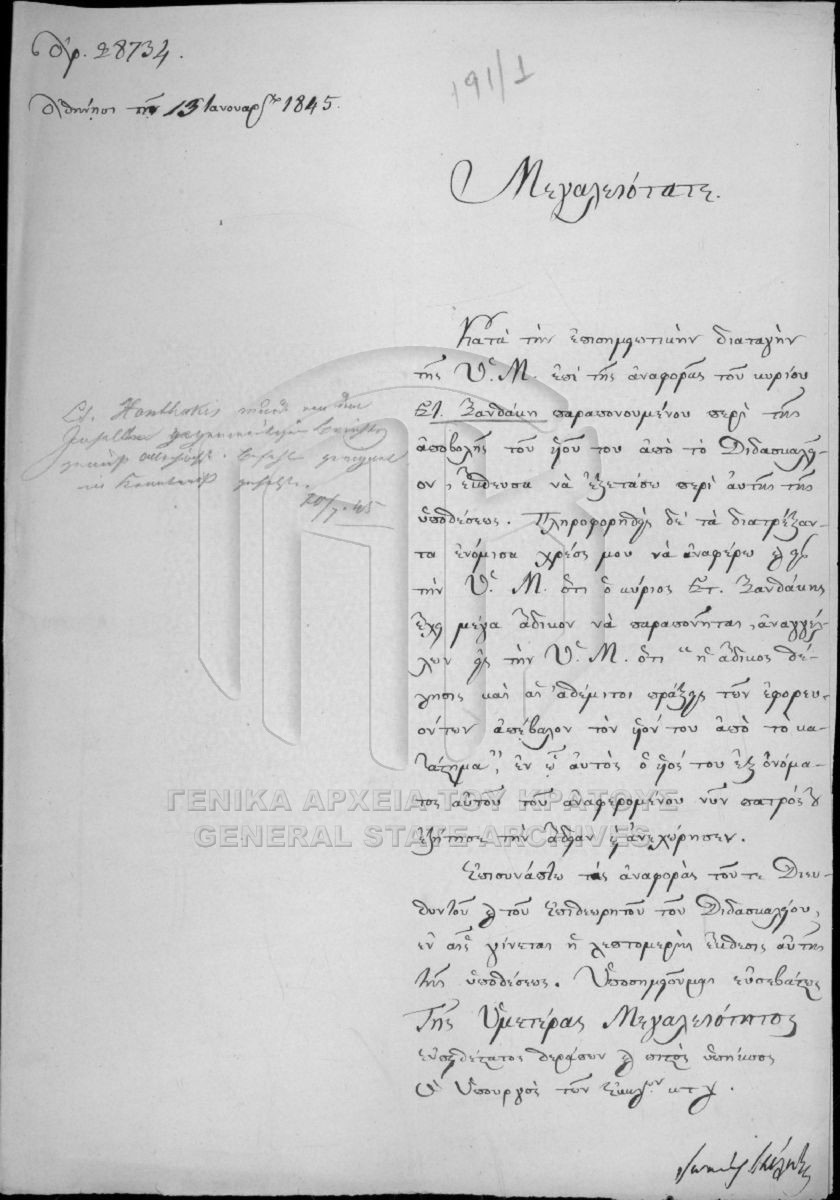 Ἀρ. 28734.
191/1
Ἀθήνησι τὴν 13 Ἰανουαρ. 1845.
Μεγαλειότατε.
Κατὰ τὴν ἐπισημειωτικὴν διαταγὴν
τῆς Ὑ. Μ. ἐπὶ τῆς ἀναφορᾶς τοῦ κυρίου
Στ. Ξανθάκη παραπονουμένου περὶ τῆς
ἀποβολῆς τοῦ υἱοῦ του ἀπὸ τὸ Διδασκαλεῖ-
ον, ἔσπευσα νὰ ἐξετάσω περὶ αὐτῆς τῆς
ὑποθέσεως. Πληροφορηθεὶς δὲ τὰ διατρέξαν-
τα ἐνόμισα χρέος μου νὰ ἀναφέρω εἰς
τὴν Ὑ. Μ. ὅτι ὁ κύριος Στ. Ξανθάκης
ἔχει μέγα ἄδικον νὰ παραπονῆται, ἀναγγέλ-
λων εἰς τὴν Ὑ. Μ. ὅτι "ἡ ἄδικος θέ-
λησις καὶ αἱ ἀθέμιτοι πράξεις τῶν ἐφορευ-
όντων ἀπέβαλον τὸν υἱόν του ἀπὸ τὸ κα-
τάστημα", ἐν ᾧ αὐτὸς ὁ υἱός του ἐξ ὀνόμα-
τος αὐτοῦ τοῦ ἀναφερομένου νῦν πατρός του
ἐζήτησε τὴν ἄδειαν καὶ ἀνεχώρησεν.
Ἐπισυνάπτω τὰς ἀναφορὰς τοῦ τε Διευ-
θυντοῦ καὶ τοῦ Ἐπιθεωρητοῦ τοῦ Διδασκαλείου,
ἐν αἷς γίνεται ἡ λεπτομερὴς ἔκθεσις αὐτῆς
τῆς ὑποθέσεως. Ὑποσημειοῦμαι εὐσεβάστως
Τῆς Ὑμετέρας Μεγαλειότητος
εὐπειθέστατος θεράπων καὶ πιστὸς ὑπήκοος
Ὁ Ὑπουργὸς τῶν Ἐκκλ. κτλ.
St. Xanthakis
Befehl
20/1. 45
ΓΕΝΙΚΑ ΑΡΧΕΙΑ ΤΟΥ ΚΡΑΤΟΥΣ
GENERAL STATE ARCHIVES